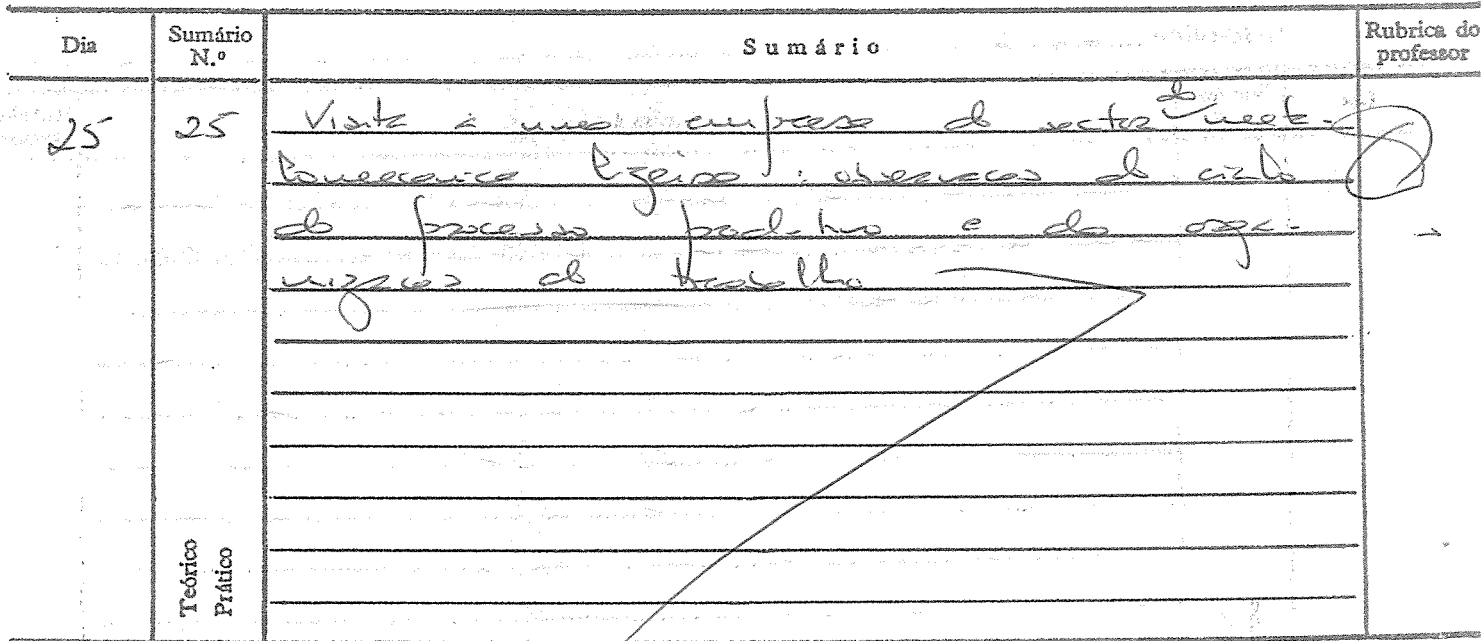 Dia
Sumário N.º
Sumário
Rubrica do professor
25
25
Visita a uma empresa do sector da meta-
lomecanica ligeira : observacao do ciclo
do processo produtivo e da orga-
nizacao do trabalho
Teórico
Prático